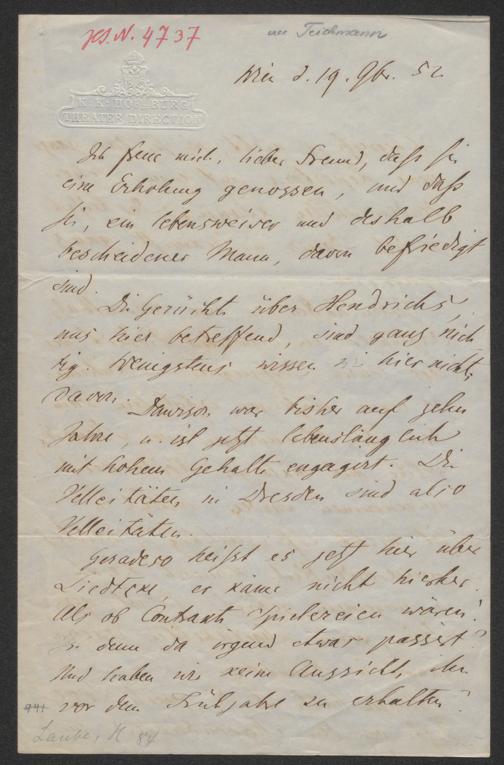 Js. N. 4737
an Teichmann
K. K. HOFBURG
THEATER DIRECTION
Wien d. 19. 9br. 52
Ich freue mich, lieber Freund, daß Sie
eine Erholung genossen, und daß
Sie, ein lebensweiser und deshalb
bescheidener Mann, davon befriedigt
sind.
Die Gerüchte über Hendrichs,
uns hier betreffend, sind ganz nich
tig. Wenigstens wissen wir hier nichts
davon.
Dawison war bisher auf zehn
Jahre, u. ist jetzt lebenslänglich
mit hohem Gehalte engagirt. Die
Velleitäten in Dresden sind also
Velleitäten.
Geradeso heißt es jetzt hier über
Liedtcke, er käme nicht hierher.
Als ob Contrakte Spielereien wären!
Ist denn da irgend etwas passirt?
Und haben wir keine Aussicht, ihn
vor dem Frühjahre zu erhalten?
Laube, H
84